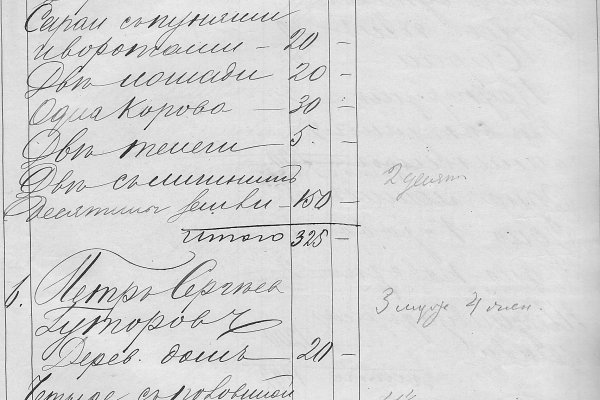 Сараи съ пунями
и воротами – 20 –
Двѣ лошади 20 –
Одна корова – 30 –
Двѣ телеги 5. –
Двѣ съ
десятины земли – 150 – 2 десят.
Итого 325 –
6. Петръ Сергѣев
Гуторовъ 3 муж 4 жен.
Дерев. домъ – 20 –
Четыре съ половиной